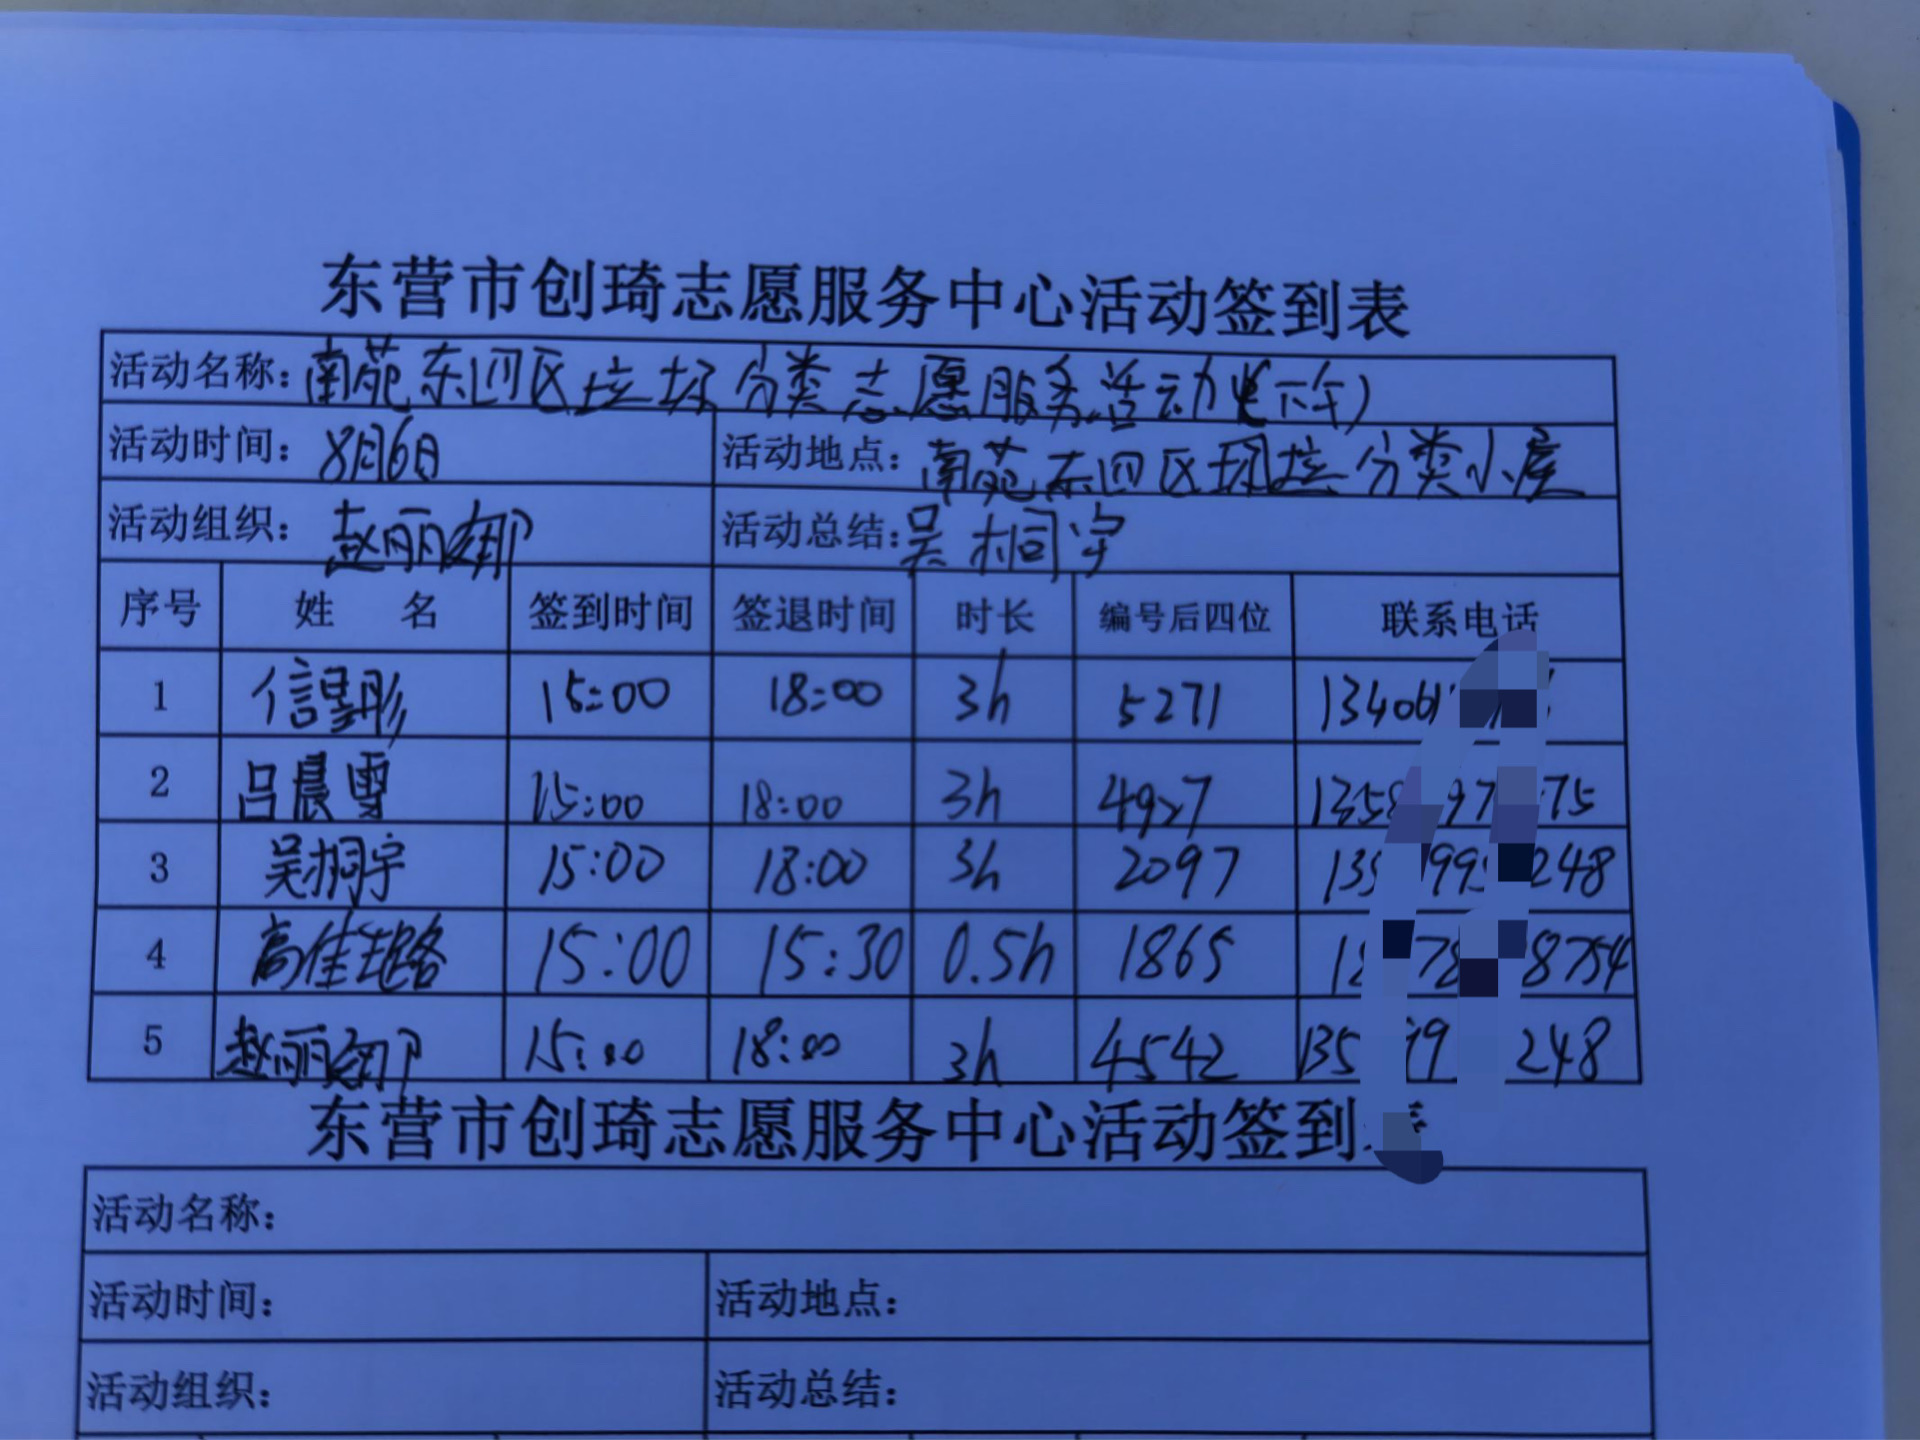 东营市创琦志愿服务中心活动签到表
活动名称：南苑东四区垃圾分类志愿服务活动（下午）
活动时间：8月6日 活动地点：南苑东四区垃圾分类小屋
活动组织：赵丽娜 活动总结：吴桐宇
序号 姓 名 签到时间 签退时间 时长 编号后四位 联系电话
1 信 15:00 18:00 3h 5271 134061
2 吕晨雪 15:00 18:00 3h 4927 1358 97 75
3 吴桐宇 15:00 18:00 3h 2097 135 99 248
4 高佳 15:00 15:30 0.5h 1865 78 8754
5 赵丽娜 15:00 18:00 3h 4542 135 99 248
东营市创琦志愿服务中心活动签到
活动名称：
活动时间： 活动地点：
活动组织： 活动总结：